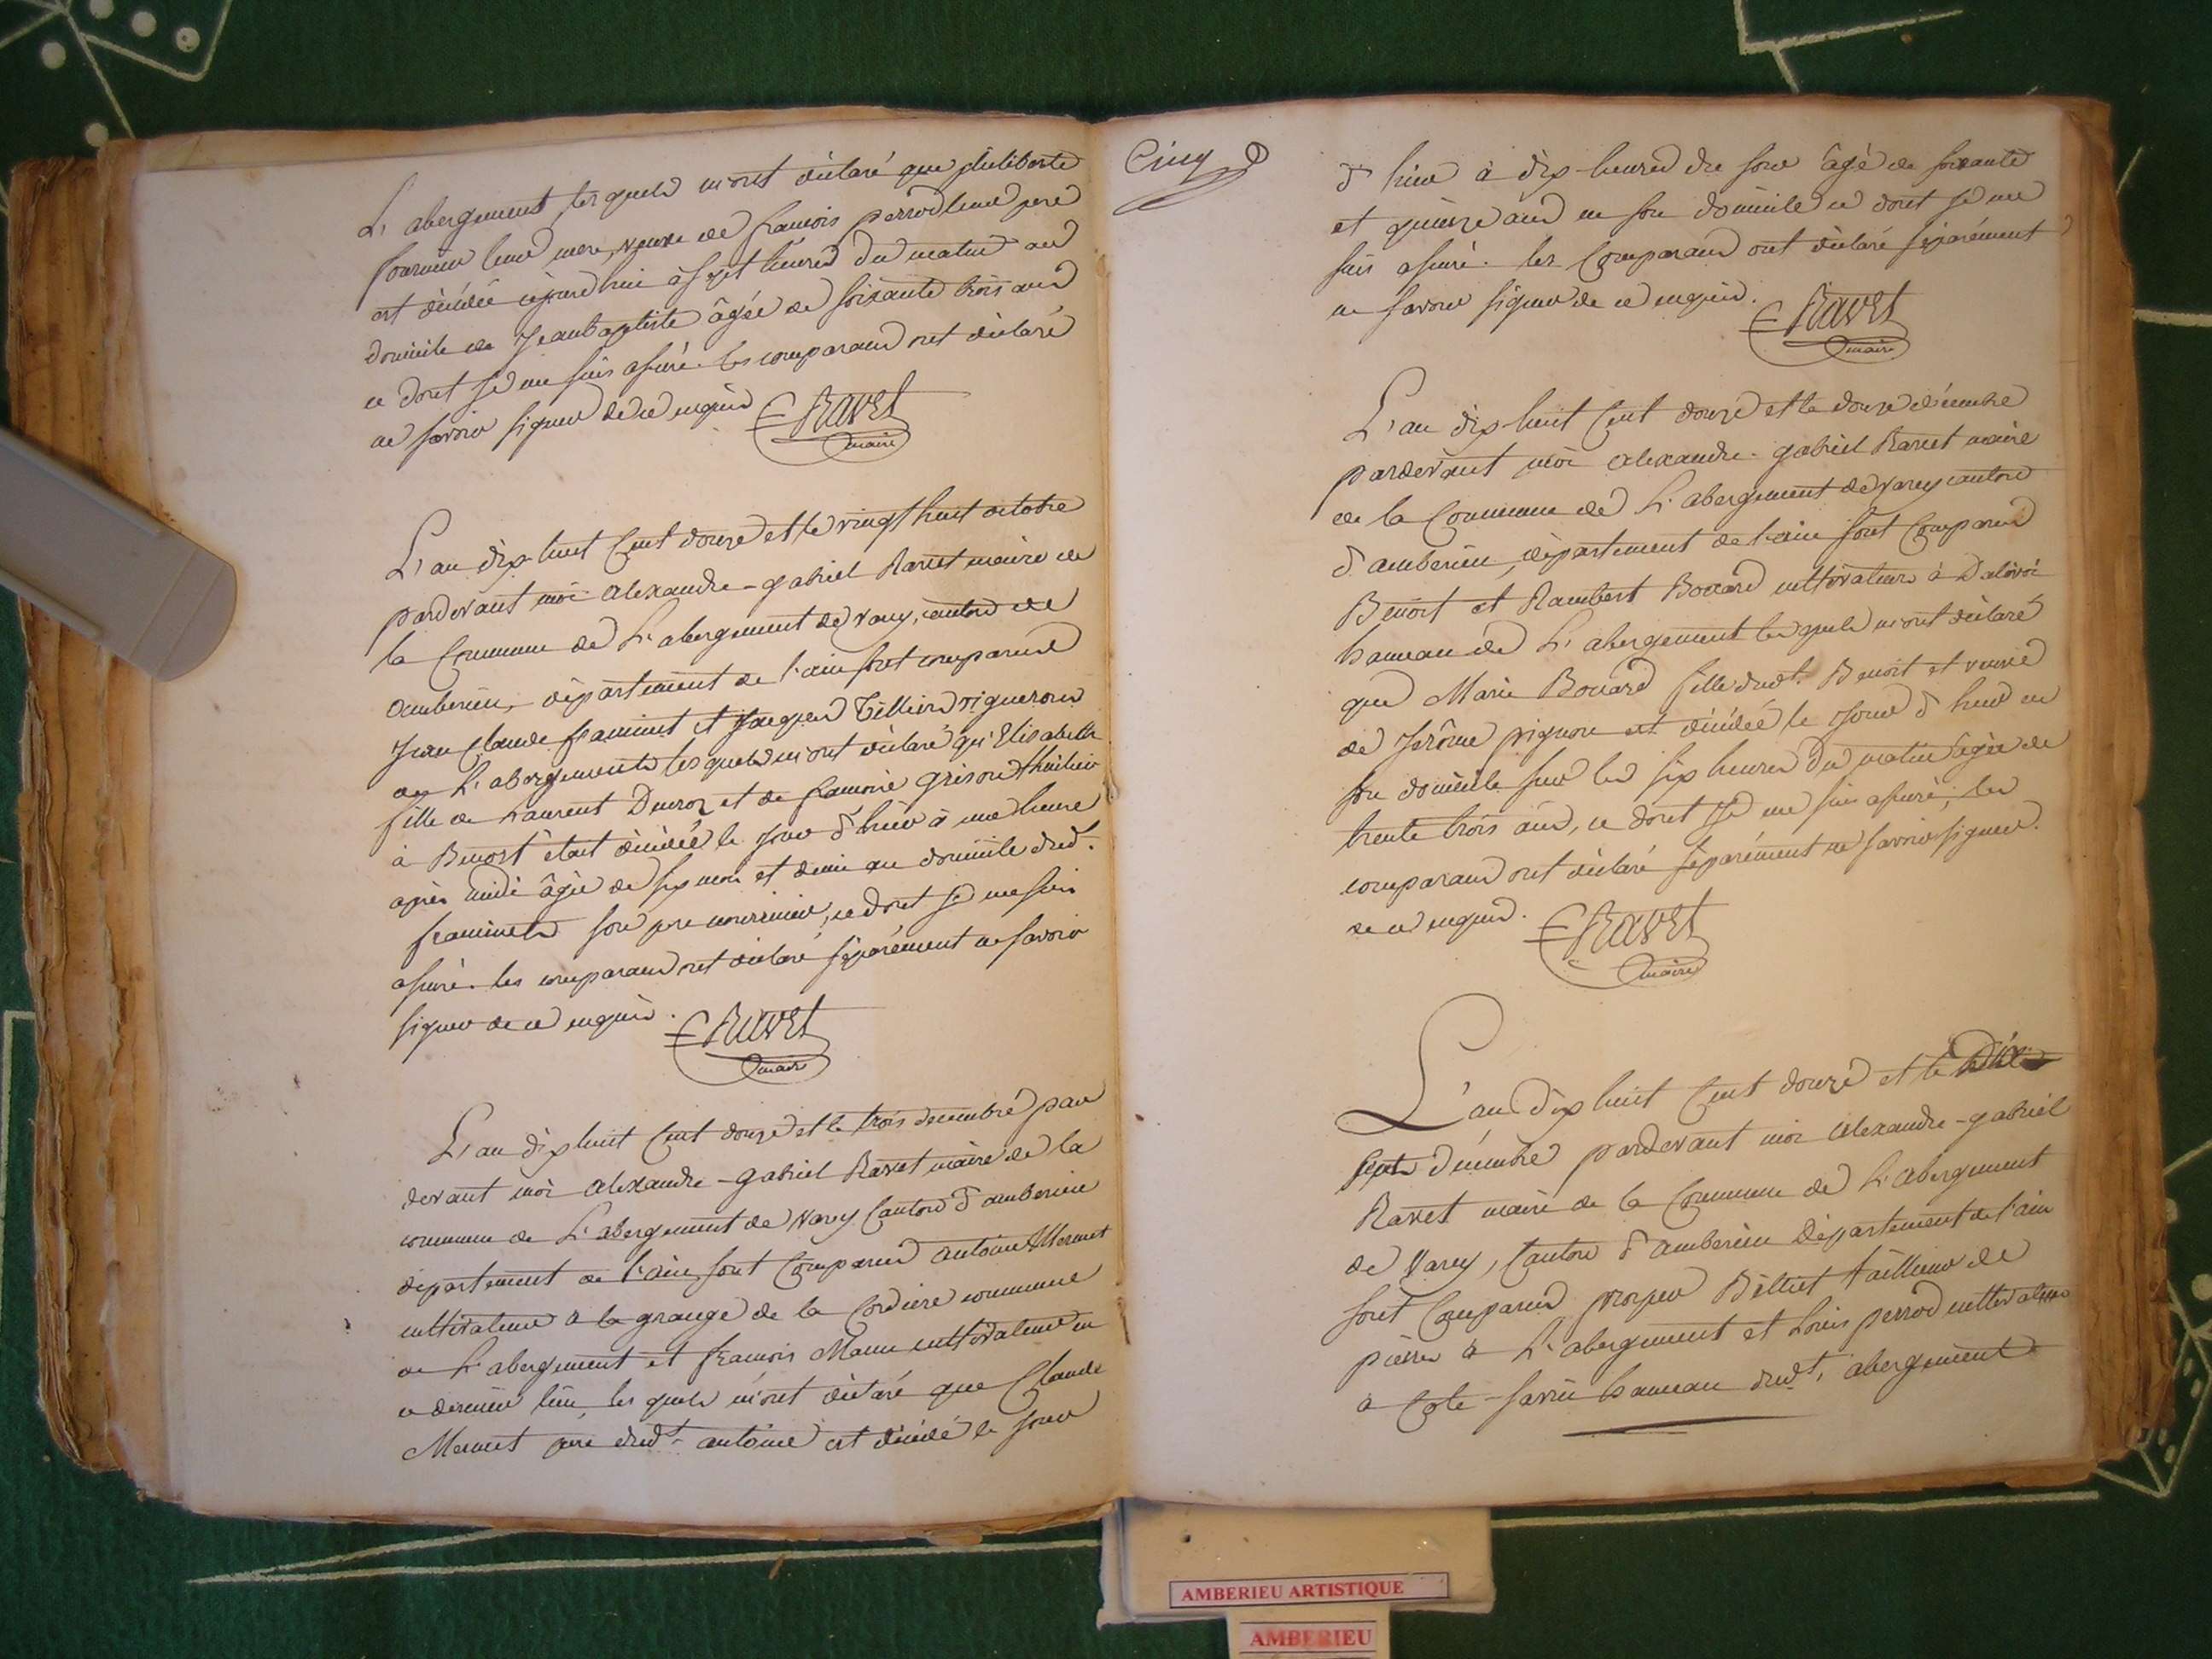 L'abergement, lesquels m'ont déclaré que philiberte
fournier leur mere, veuve de francois perrod leur pere
est décédée cejourd'hui à sept heures du matin au
domicile de Jean baptiste âgée de soixante trois ans
ce dont je me suis assuré. les comparans ont déclaré
ne savoir signer de ce enquis
Ravet
maire
L'an dix-huit cent douze et le vingt huit octobre
pardevant moi alexandre-gabriel Ravet maire de
la commune de L'abergement de varey, canton de
amberieu, département de l'ain sont comparus
Jean Claude framinet et Jacques Tillier vignerons
de L'abergement lesquels m'ont déclaré qu'Elisabeth
fille de Laurent Ducroz et de francoise grison
à Benost étant décédée le jour d'hier à une heure
après midi âgée de six mois et demi au domicile dudt.
framinet son pere nourricier, ce dont je me suis
assuré. les comparans ont déclaré séparément ne savoir
signer de ce enquis.
Ravet
maire
L'an dix huit cent douze et le trois décembre par
devant moi alexandre-gabriel Ravet maire de la
commune de L'abergement de Varey canton d'amberieu
département de l'ain, sont comparus antoine Mermet
cultivateur à la grange de la Cordiere commune
de L'abergement et francois Mame cultivateur en
ce dernier lieu, lesquels m'ont déclaré que Claude
Mermet pere dudt. antoine est décédé le jour
Cinq
d'hier à dix heures du soir âgé de soixante
et quinze ans en son domicile ce dont je me
suis assuré. les comparans ont déclaré séparément
ne savoir signer de ce enquis.
Ravet
maire
L'an dix-huit cent douze et le douze décembre
pardevant moi alexandre-gabriel Ravet maire
de la commune de L'abergement de varey canton
d'amberieu, département de l'ain sont comparus
Benoit et Rambert Bovard cultivateurs à Dalivoi
hameau de L'abergement lesquels m'ont déclaré
que Marie Bovard fille dudt. Benoit et veuve
de Jerôme pignon est décédée le jour d'hier en
son domicile sur les six heures du matin âgée de
trente trois ans, ce dont je me suis assuré, les
comparans ont déclaré séparément ne savoir signer.
de ce enquis.
Ravet
maire
L'an dix huit cent douze et le Dix
sept décembre pardevant moi alexandre-gabriel
Ravet maire de la commune de L'abergement
de Varey, canton d'amberieu département de l'ain
sont comparus prosper Billiet tailleur de
pierres à L'abergement et Louis perrod cultivateur
à Cote-savin hameau dudt. abergement
AMBERIEU ARTISTIQUE
AMBERIEU